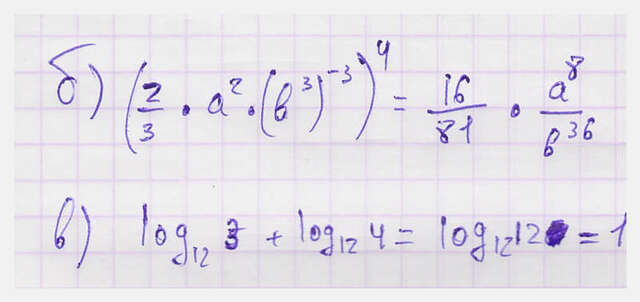 б) (2/3 · a² · (b³)⁻³)⁴ = 16/81 · a⁸/b³⁶
в) log₁₂ 3 + log₁₂ 4 = log₁₂ 12 = 1